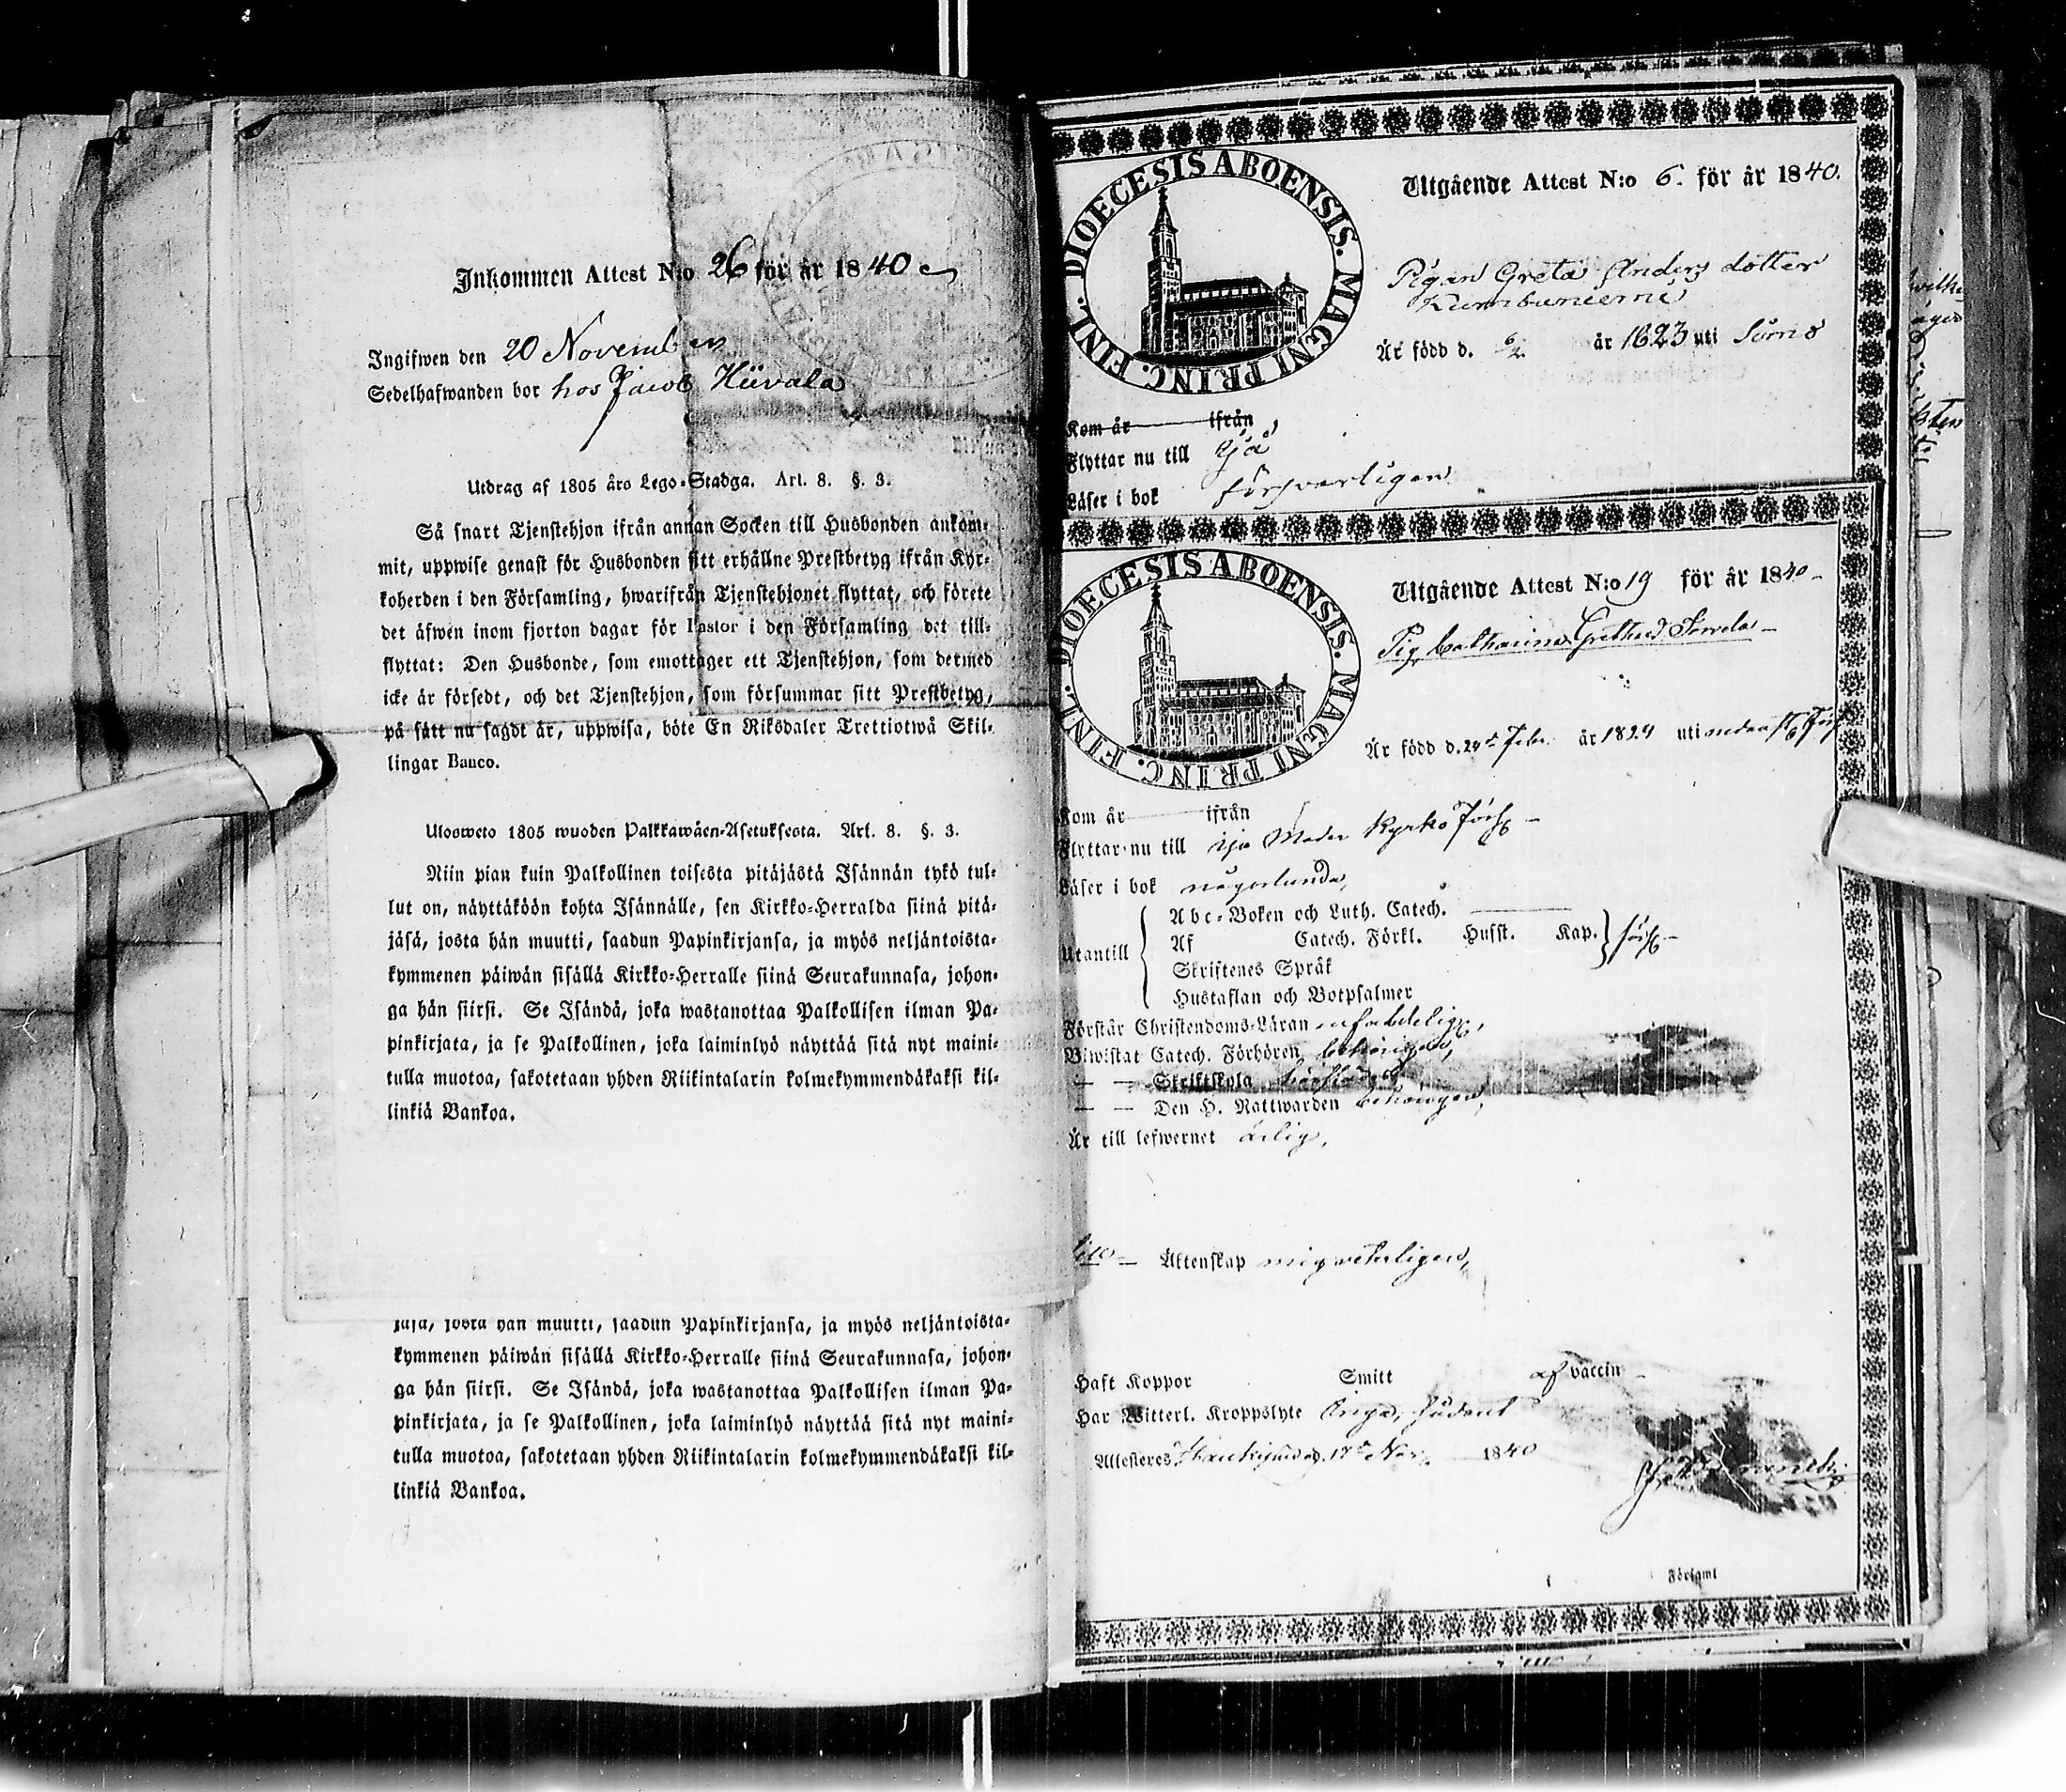 Inkommen Attest N:o 26 för år 1840
Ingifwen den 20 November
Sedelhafwanden bor hos Jacob Hiivala
Utdrag af 1805 års Lego-Stadga. Art. 8. §. 3.
Så snart Tjenstehjon ifrån annan Socken till Husbonden ankom-
mit, uppwise genast för Husbonden sitt erhållne Prestbetyg ifrån Kyr-
koherden i den Församling, hwarifrån Tjenstehjonet flyttat, och förete
det äfwen inom fjorton dagar för Pastor i den Församling det till-
flyttat: Den Husbonde, som emottager ett Tjenstehjon, som dermed
icke är försedt, och det Tjenstehjon, som försummar sitt Prestbetyg,
på sätt nu sagdt är, uppwisa, böte En Riksdaler Trettiotwå Skil-
lingar Banco.
Ulosweto 1805 wuoden Palkkawäen-Asetuksesta. Art. 8. §. 3.
Niin pian kuin Palkollinen toisesta pitäjästä Isännän tykö tul-
lut on, näyttäköön kohta Isännälle, sen Kirkko-Herralda siinä pitä-
jäsä, josta hän muutti, saadun Papinkirjansa, ja myös neljäntoista-
kymmenen päiwän sisällä Kirkko-Herralle siinä Seurakunnasa, johon-
ga hän siirsi. Se Isändä, joka wastanottaa Palkollisen ilman Pa-
pinkirjata, ja se Palkollinen, joka laiminlyö näyttää sitä nyt maini-
tulla muotoa, sakotetaan yhden Riikintalarin kolmekymmendäkaksi kil-
linkiä Bankoa.
jäsä, josta hän muutti, saadun Papinkirjansa, ja myös neljäntoista-
kymmenen päiwän sisällä Kirkko-Herralle siinä Seurakunnasa, johon-
ga hän siirsi. Se Isändä, joka wastanottaa Palkollisen ilman Pa-
pinkirjata, ja se Palkollinen, joka laiminlyö näyttää sitä nyt maini-
tulla muotoa, sakotetaan yhden Riikintalarin kolmekymmendäkaksi kil-
linkiä Bankoa.
DIOECESIS ABOENSIS. MAGNI PRINC. FINL.
Utgående Attest N:o 6. för år 1840.
Pigan Greta Anders dotter
Är född d. 6/2 år 1823 uti Somo
Kom år ifrån
Flyttar nu till Ijå
Läser i bok försvarligen
DIOECESIS ABOENSIS. MAGNI PRINC. FINL.
Utgående Attest N:o 19 för år 1840
Pig. Catharina Grethasd.
Är född d. 24de Febr. år 1824 uti
Kom år ifrån
Flyttar nu till Ijo Moder Kyrko förs.
Läser i bok någorlunda,
Utantill
Abc-Boken och Luth. Catech.
Af Catech. Förkl. Husst. Kap.
Skriftenes Språk
Hustaflan och Botpsalmer
Förstår Christendoms-Läran
Biwistat Catech. Förhören behörigen,
— — Skriftskola
— — Den H. Nattwarden behörigen,
Är till lefwernet ärlig,
Äktenskap mig veterligen,
Haft Koppor Smitt af vaccin
Har Witterl. Kroppslyte Inga,
Attesteras Haukipudas 17de Nov. 1840
Församl